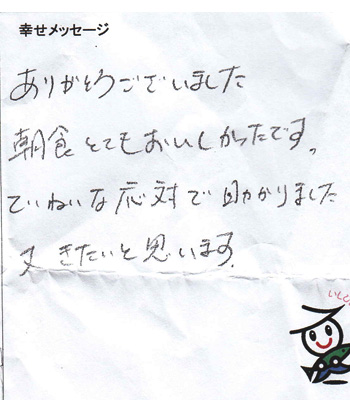 幸せメッセージ
ありがとうございました
朝食とてもおいしかったです。
ていねいな応対で助かりました
又きたいと思います。